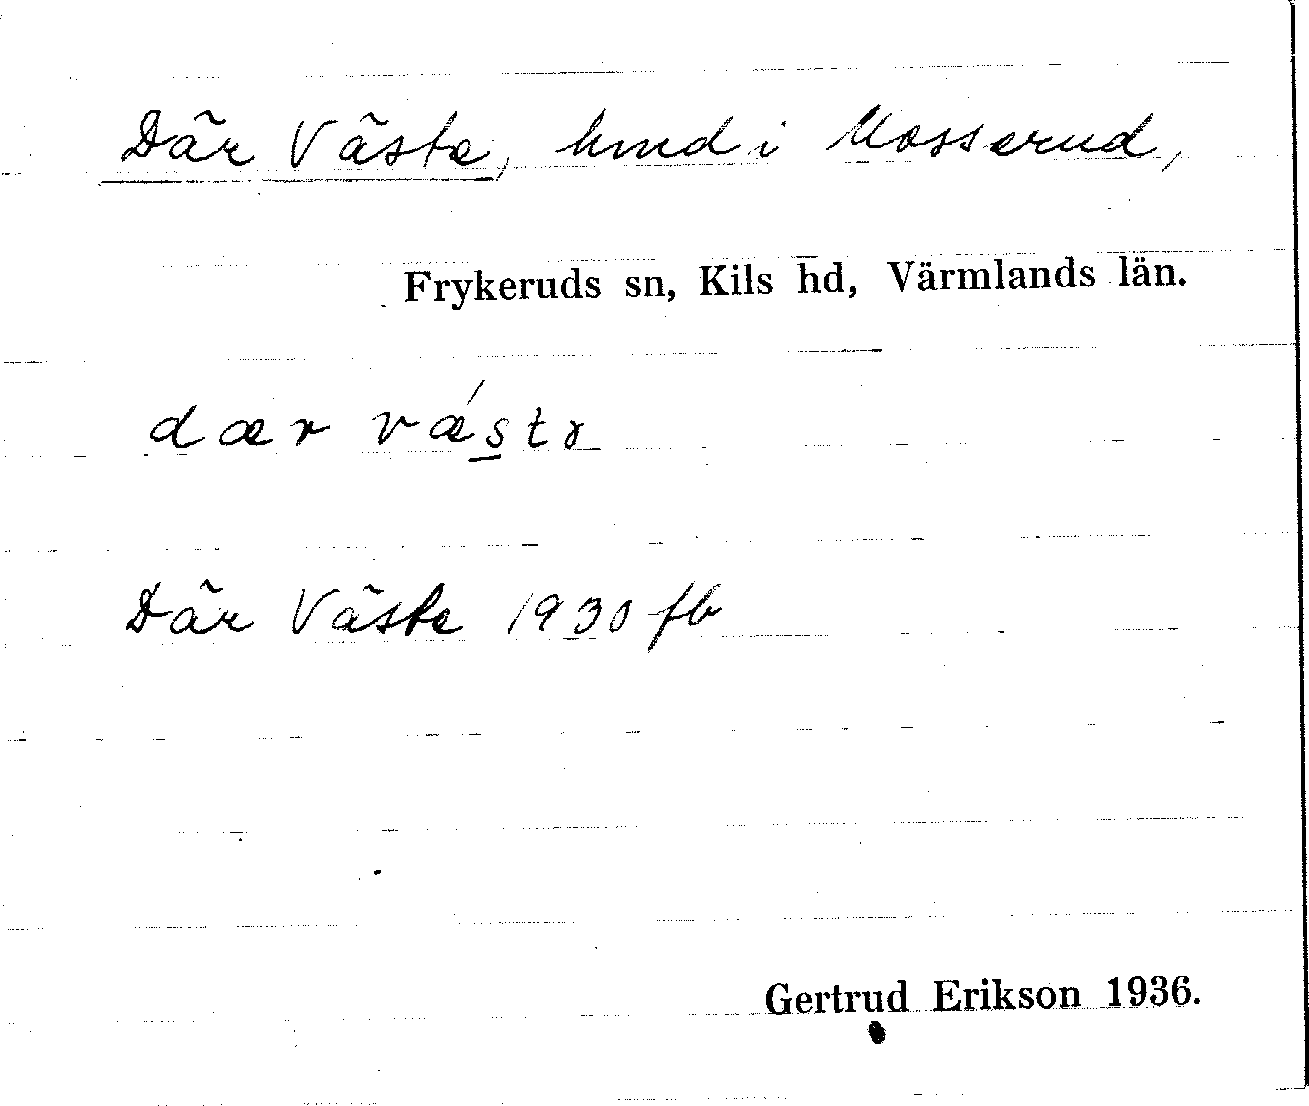 Där Väste, hmd i Mosserud,
Frykeruds sn, Kils hd, Värmlands län.
dær vǽstɤ
Där Väste 1930 fb
Gertrud Erikson 1936.